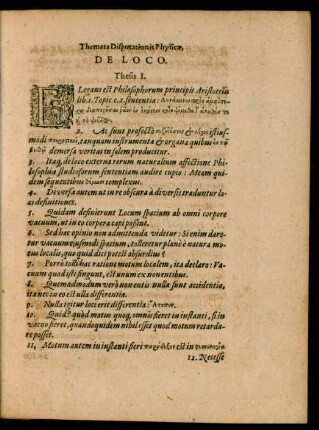 Themata Disputationis Physicæ,
DE LOCO.
Thesis I.
ELegans est Philosophorum principis Aristotelis
lib. 1. Topic. c. 2. sententia:
2. Ac sunt profectò istius-
modi tanquam instrumenta & organa quibus
demersa veritas in solem producitur.
3. Itaq́; de loco externa rerum naturalium affectione Phi-
losophiæ studiosorum sententiam audire cupio: Meam qui-
dem sequentibus complexus.
4. Diversa autem ut in re obscura à diversis traduntur lo-
ci definitiones.
5. Quidam definierunt Locum spatium ab omni corpore
vacuum, ut in eo corpora capi possint.
6. Sed hæc opinio non admittenda videtur: Si enim dare-
tur vacuum ejusmodi spatium, tolleretur planè à natura mo-
tus localis, quo quid dici potest absurdius?
7. Porrò tolli hac ratione motum localem, ita declaro: Va-
cuum quod isti fingunt, est unum ex nonentibus.
8. Quemadmodum verò non entis nulla sunt accidentia,
ita nec in eo est ulla differentia.
9. Nulla igitur loci erit differentia:
10. Quid? quòd motus quoq; omnis fieret in instanti, si in
vacuo fieret, quandoquidem nihil esset quod motum retarda-
re posset.
11. Motum autem in instanti fieri est in
12. Necesse